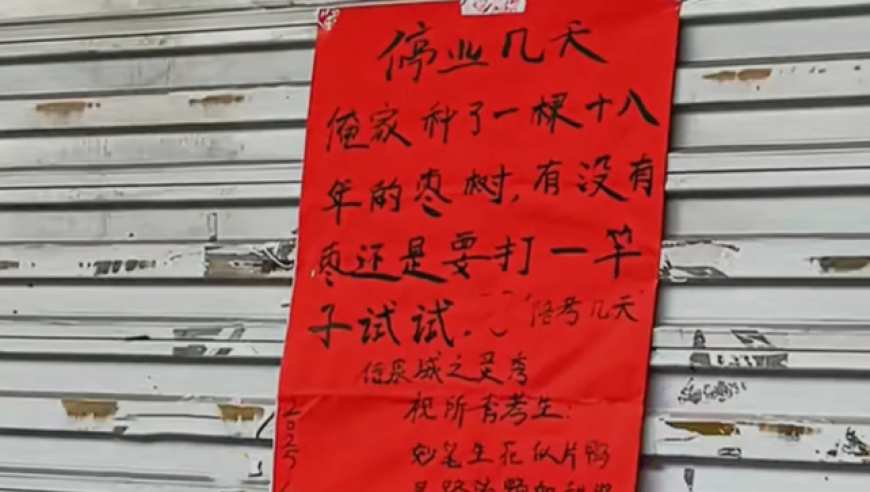 停业几天
俺家种了一棵十八
年的枣树,有没有
枣还是要打一竿
子试试.(陪考几天
视所有考生:
妙笔生花似片鸭
2025